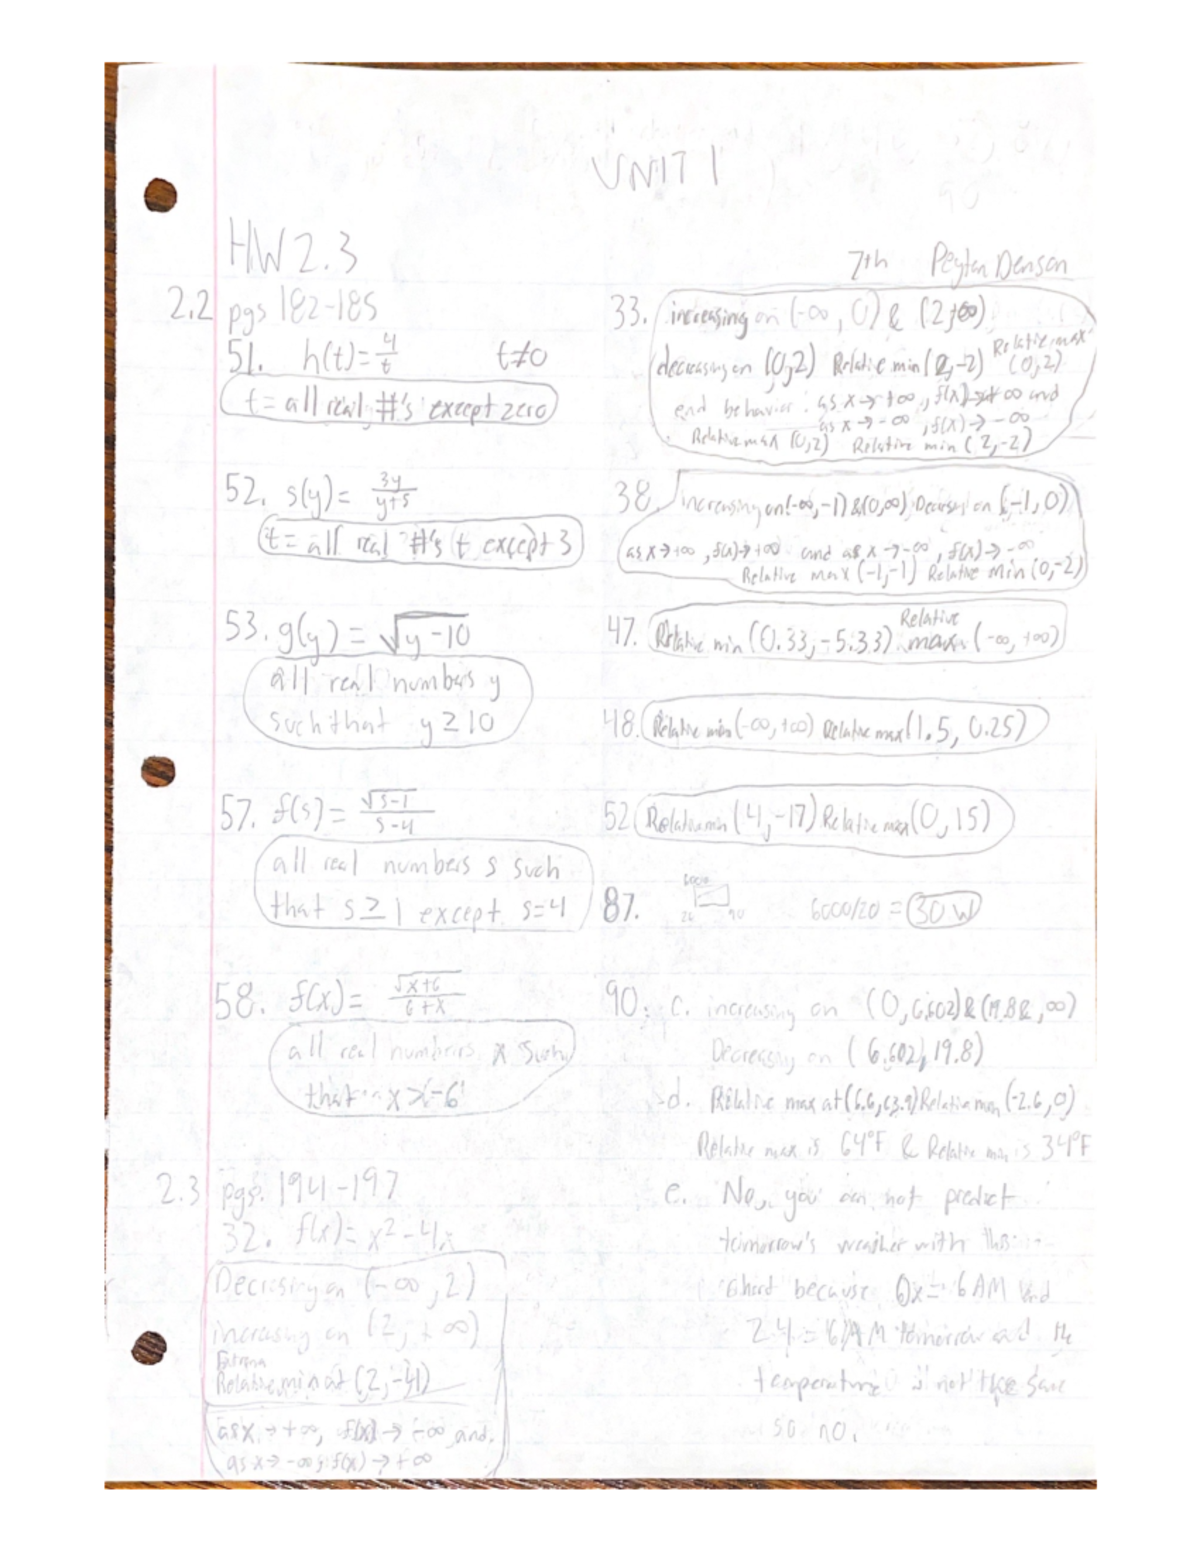 UNIT 1
HW 2.3
7th Peyton Denson
2.2 pgs 182-185
51. h(t)= 4/t t≠0
t = all real #'s except zero
52. s(y)= 3y/y+5
t = all real #'s t except 3
53. g(y) = √y-10
all real numbers y
such that y ≥ 10
57. f(s) = √s-1/s-4
all real numbers s such
that s ≥ 1 except s=4
58. f(x)= √x+6/6+x
all real numbers x such
that x > -6
2.3 pgs. 194-197
32. f(x)= x²-4x
Decreasing on (-∞, 2)
increasing on (2, +∞)
Relative min at (2, -4)
as x → +∞, f(x) → -∞ and
as x → -∞, f(x) → +∞
33. increasing on (-∞, 0) & (2, +∞)
decreasing on (0, 2) Relative min (2, -2) Relative max (0, 2)
end behavior: as x → +∞, f(x) → +∞ and
as x → -∞, f(x) → -∞
Relative max (0, 2) Relative min (2, -2)
38. increasing on (-∞, -1) & (0, ∞) Decreasing on (-1, 0)
as x → +∞, f(x) → +∞ and as x → -∞, f(x) → -∞
Relative max (-1, -1) Relative min (0, -2)
47. Relative min (0.33, -5.33) Relative max (-∞, +∞)
48. Relative min (-∞, +∞) Relative max (1.5, 0.25)
52 Relative min (4, -17) Relative max (0, 15)
87. 6000/20 = 30 W
90. c. increasing on (0, 6.602) & (19.8, ∞)
Decreasing on (6.602, 19.8)
d. Relative max at (6.6, 63.9) Relative min (-2.6, 0)
Relative max is 64°F & Relative min is 34°F
e. No, you can not predict
tomorrow's weather with this
chart because 0x = 6 AM and
24 = 6 AM tomorrow and the
temperature is not the same
so no.